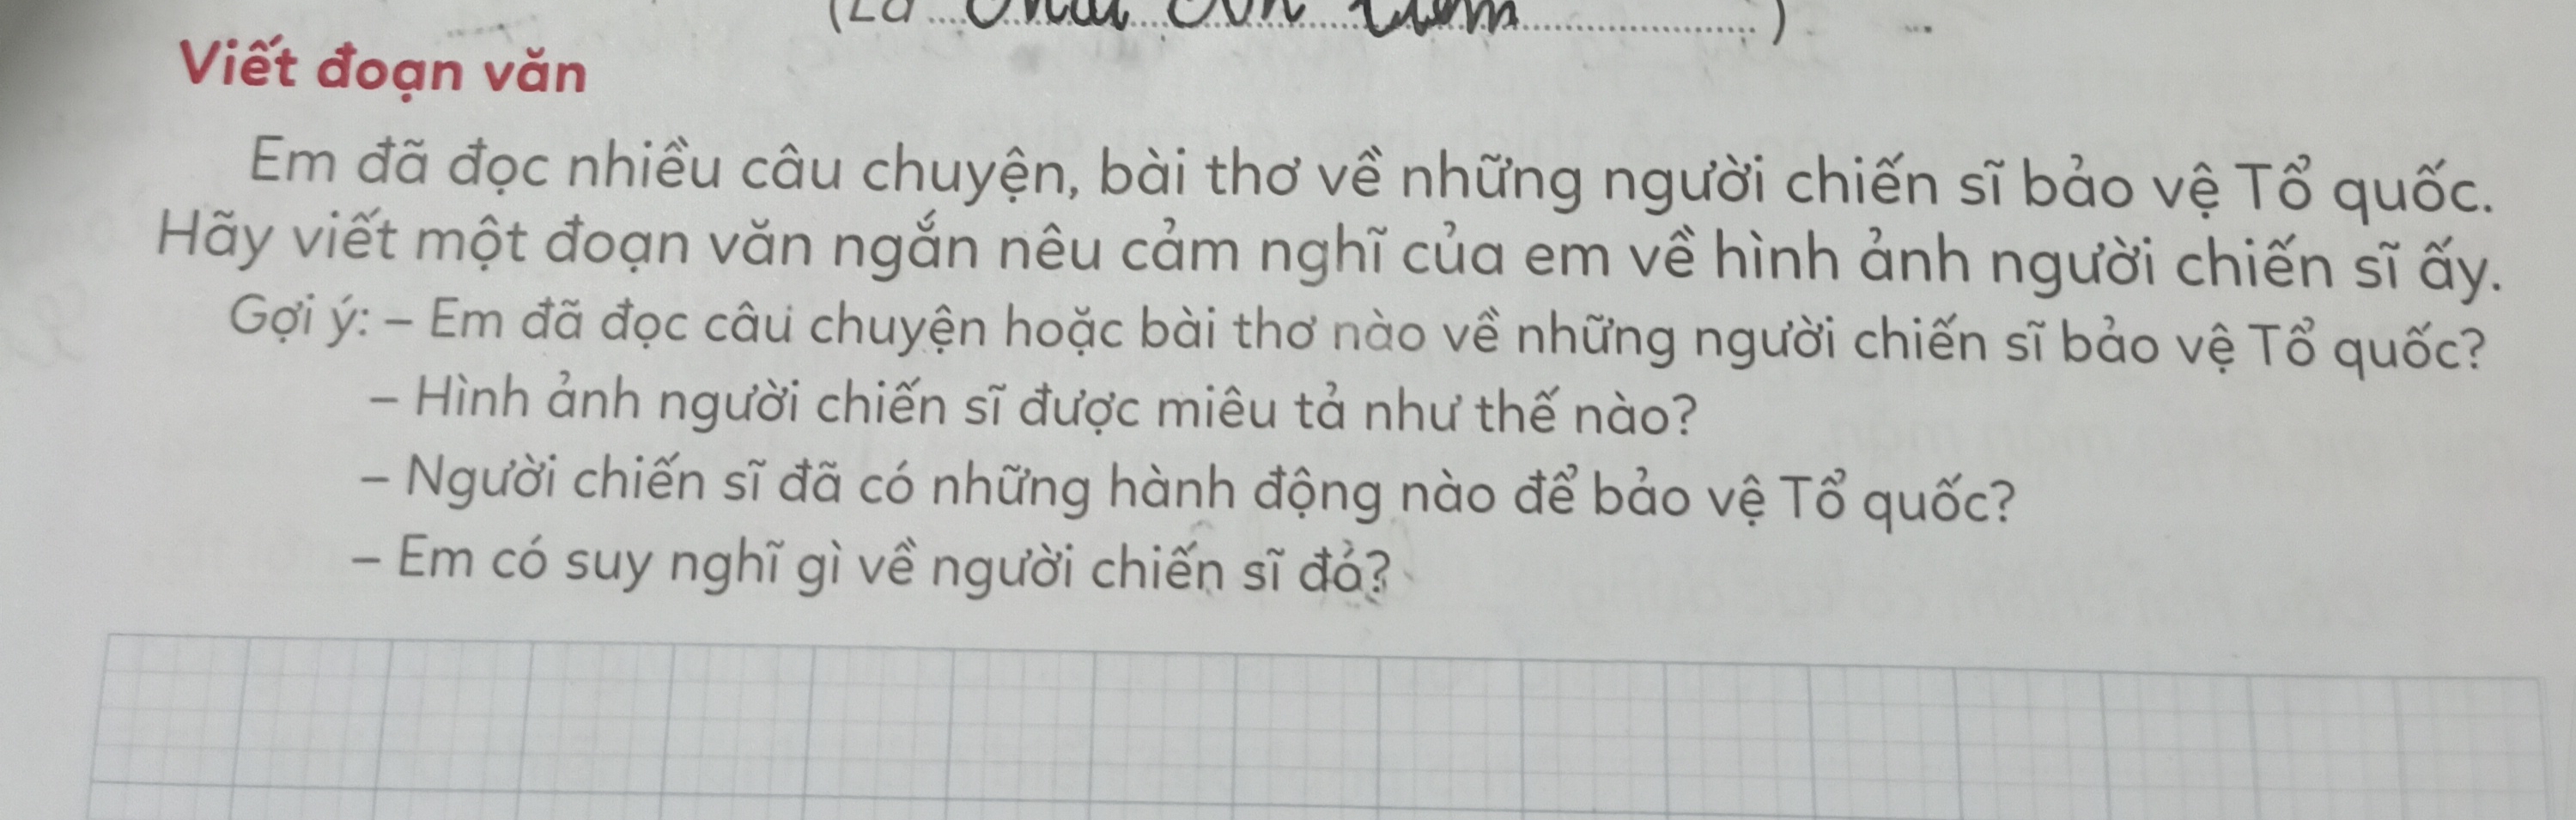 (Là
)
Viết đoạn văn
Em đã đọc nhiều câu chuyện, bài thơ về những người chiến sĩ bảo vệ Tổ quốc.
Hãy viết một đoạn văn ngắn nêu cảm nghĩ của em về hình ảnh người chiến sĩ ấy.
Gợi ý: – Em đã đọc câu chuyện hoặc bài thơ nào về những người chiến sĩ bảo vệ Tổ quốc?
– Hình ảnh người chiến sĩ được miêu tả như thế nào?
– Người chiến sĩ đã có những hành động nào để bảo vệ Tổ quốc?
– Em có suy nghĩ gì về người chiến sĩ đó?